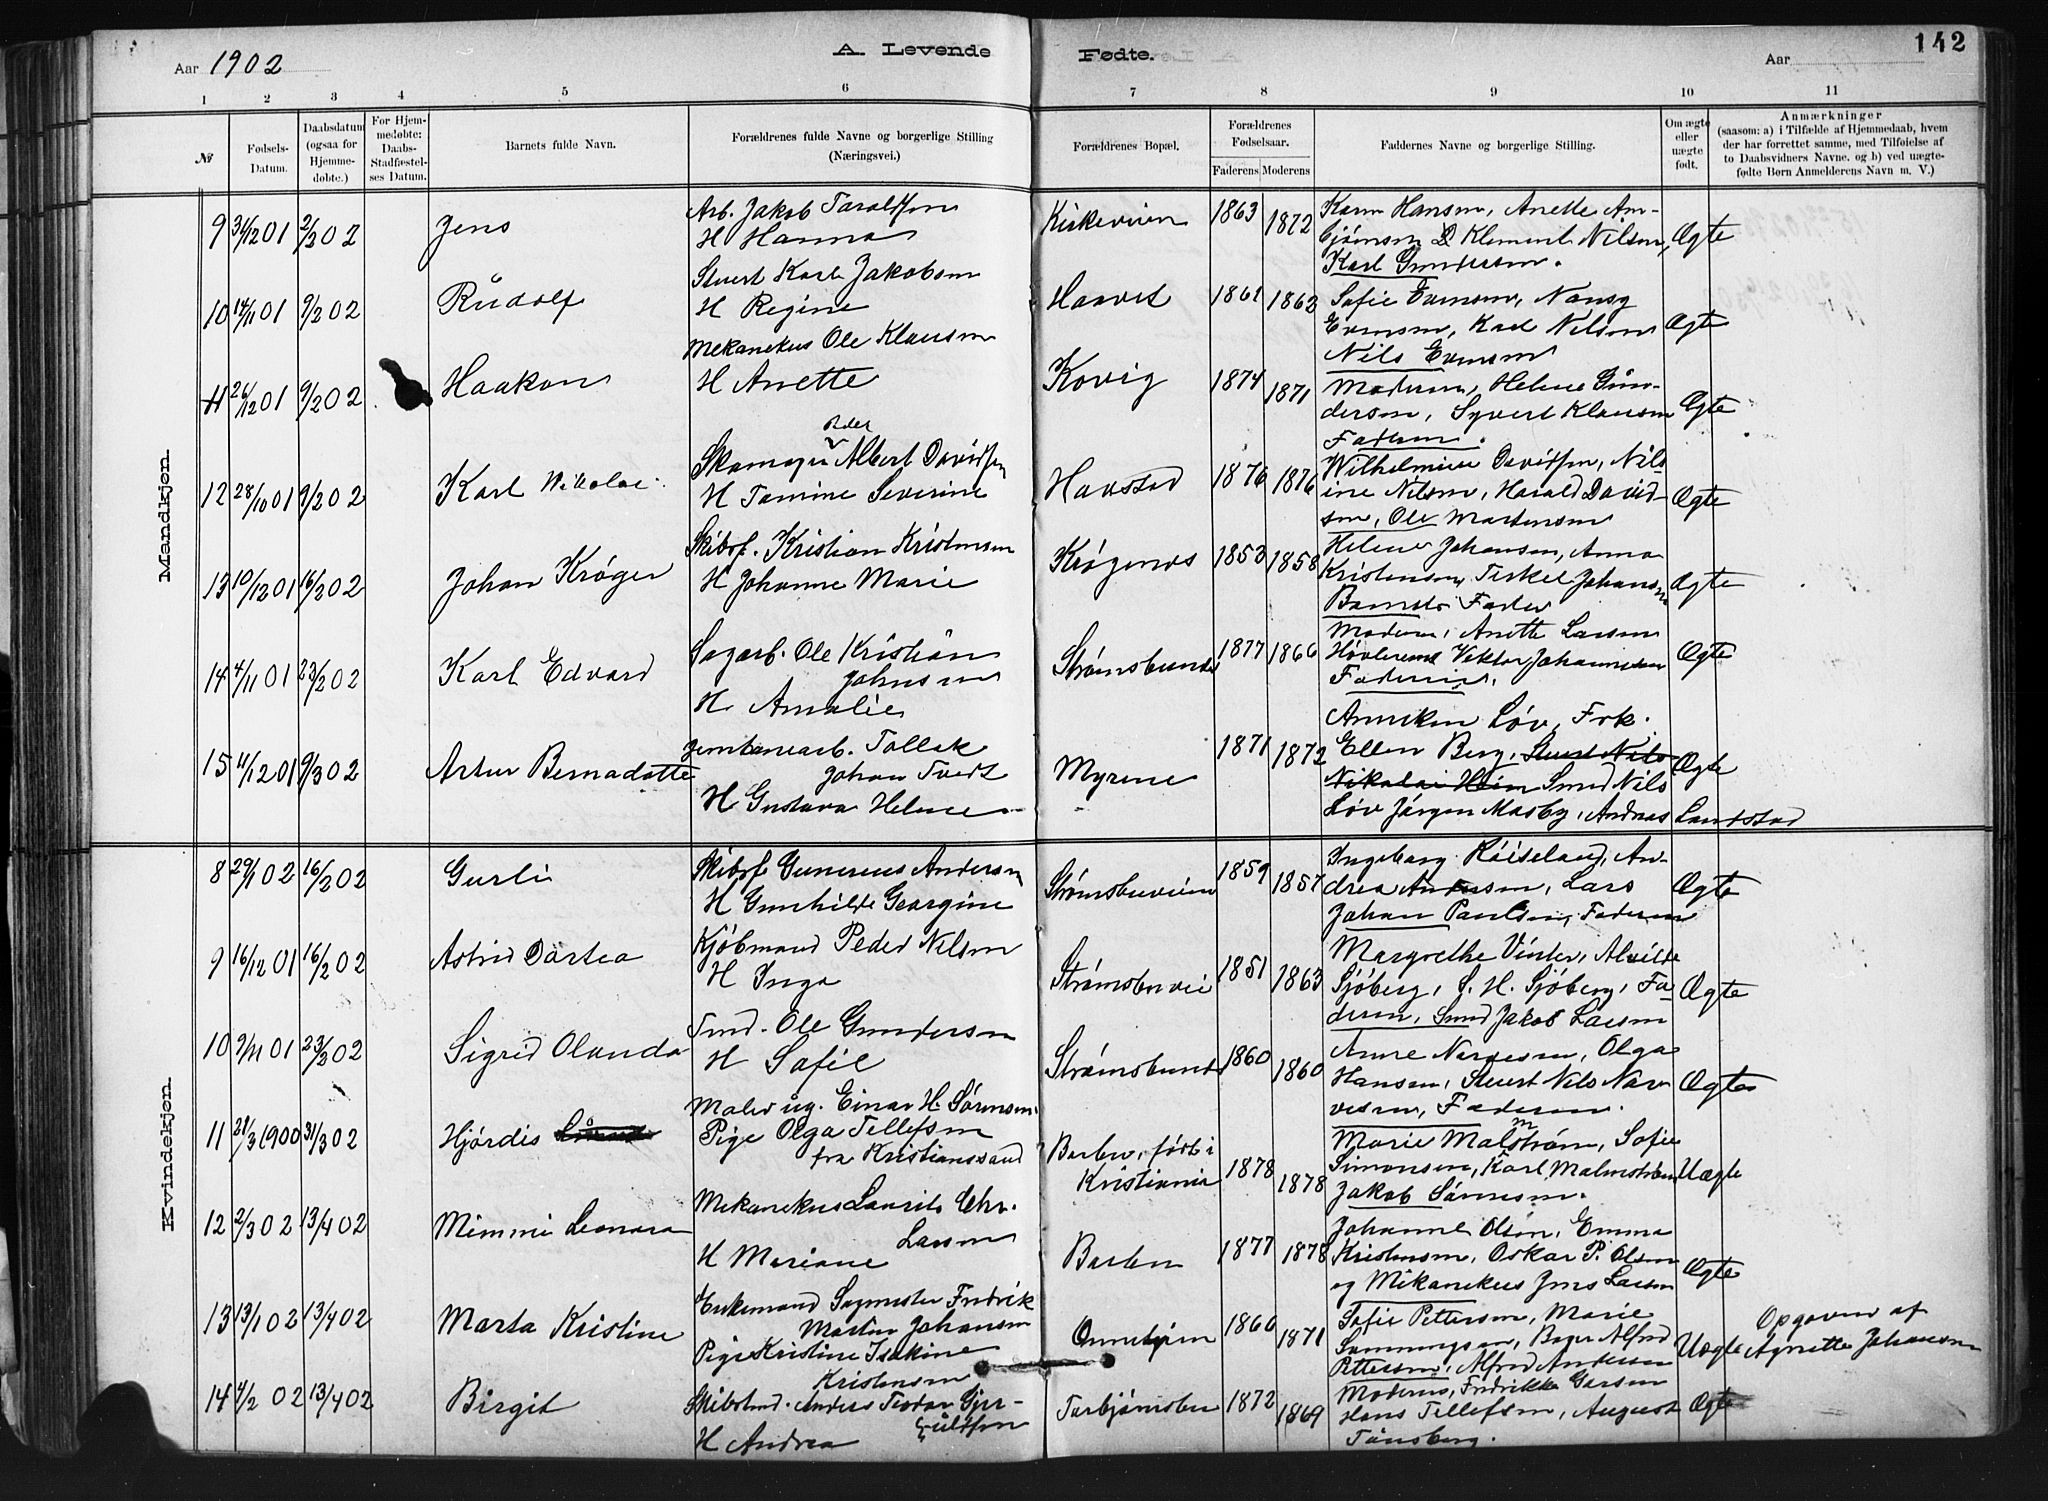 A. Levende Fødte.
142
Aar 1902
Aar
1 2 3 4 5 6 7 8 9 10 11
№
Fødsels-Datum.
Daabsdatum (ogsaa for Hjemmedøbte.)
For Hjemmedøbte: Daabs-Stadfæstelses Datum.
Barnets fulde Navn.
Forældrenes fulde Navne og borgerlige Stilling (Næringsvei.)
Forældrenes Bopæl.
Forældrenes Fødselsaar.
Faderens Moderens
Faddernes Navne og borgerlige Stilling.
Om ægte eller uægte født.
Anmærkninger
(saasom: a) i Tilfælde af Hjemmedaab, hvem der har forrettet samme, med Tilføielse af to Daabsvidners Navne. og b) ved uægtefødte Børn Anmelderens Navn m. V.)
Mandkjøn.
9 31/12 01 2/2 02 Jens
Arb. Jakob Taraldsen
H Hanna
Kirkeveien 1863 1872
Karen Hansen, Anette
Klement Nilsen,
Karl Gundersen.
Ægte
10 14/11 01 9/2 02 Rudolf
Stuert Karl Jakobsen
H Regine
1861 1862
Sofie Evensen, Nansy
Evensen, Karl Nilsen
Nils Evensen
Ægte
11 26/12 01 9/2 02 Haakon
Mekanekus Ole Klausen
H Anette
Kovig 1874 1871
Moderen, Helene Gundersen, Syvert Klausen
Faderen.
Ægte
12 28/10 01 9/2 02 Karl Nikolai
Skomager Peder Albert Davidsen
H Tomine Severine
Havstad 1876 1876
Wilhelmine Davidsen, Niline Nilsen, Harald Davidsen, Ole Martensen
Ægte
13 10/12 01 16/2 02 Johan Krøger
Skibsf. Kristian Kristensen
H Johanne Marie
Krøgenes 1853 1858
Helene Johansen, Anna
Kristensen, Terkel Johansen
Barnets Fader
Ægte
14 4/11 01 23/2 02 Karl Edvard
Sagarb. Ole Kristian
Johnsen
H Amalie
Strømsbunes 1877 1866
Moderen, Anette Larsen
Viktor Johannesen
Faderen.
Ægte
15 11/12 01 9/3 02 Artur Bernadotte
Jernbanearb. Tollak
Johan Tvedt
H Gustava Helene
Myrene 1871 1872
Anniken Løv, Frk.
Ellen Berg, Stuert Nils
Nikolai Smed Nils
Løv Jørgen Masby, Andreas Landstad
Ægte
Kvindekjøn.
8 29/1 02 16/2 02 Gurli
Skibsf Gunerius Andersen
H Gunhilde Georgine
Strømsbuveien 1859 1857
Ingeborg Røiseland, Andrea Andersen, Lars
Johan Paulsen, Faderen
Ægte
9 16/12 01 16/2 02 Astrid Dortea
Kjøbmand Peder Nilsen
H Inga
Strømsbuvei 1851 1863
Margrethe Vinter, Alvilde
Sjøberg, S. H. Sjøberg, Faderen, Smed Jakob Larsen
Ægte
10 9/11 01 23/2 02 Sigrid Olunda
Smd. Ole Gundersen
H Sofie
Strømsbunes 1860 1860
Anne Narvesen, Olga
Hansen, Stuert Nils Narvesen, Faderen.
Ægte
11 28/3 1900 31/3 02 Hjørdis
Maler ug. Einar H. Sørensen.
Pige Olga Tellefsen
fra Kristianssand
Barbu, født i
Kristiania 1878 1878
Marie Malmstrøm, Sofie
Simonsen, Karl Malmstrøm
Jakob Sørensen.
Uægte
12 2/3 02 13/4 02 Mimmi Leonora
Mekanekus Laurits Chr.
Larsen
H Mariane
Barbu 1877 1878
Johanne Olsen, Emma
Kristensen, Oskar P. Olsen
og Mikanekus Jens Larsen
Ægte
13 13/1 02 13/4 02 Marta Kristine
Enkemand Sagmester Fredrik
Martin Johansen
Pige Kristine Isakine
Kristensen
1860 1871
Sofie Pettersen, Marie
Bager Alfred
Pettersen, Alfred Andersen
Uægte
Opgaven af
Agnette Johansen
14 4/2 02 13/4 02 Birgit
Skibstmd. Anders Teodor Gjeruldsen
H Andrea
Torbjørnsbu 1872 1869
Moderen, Fredrikke Garsen
Hans Tellefsen, August
Tønsberg.
Ægte